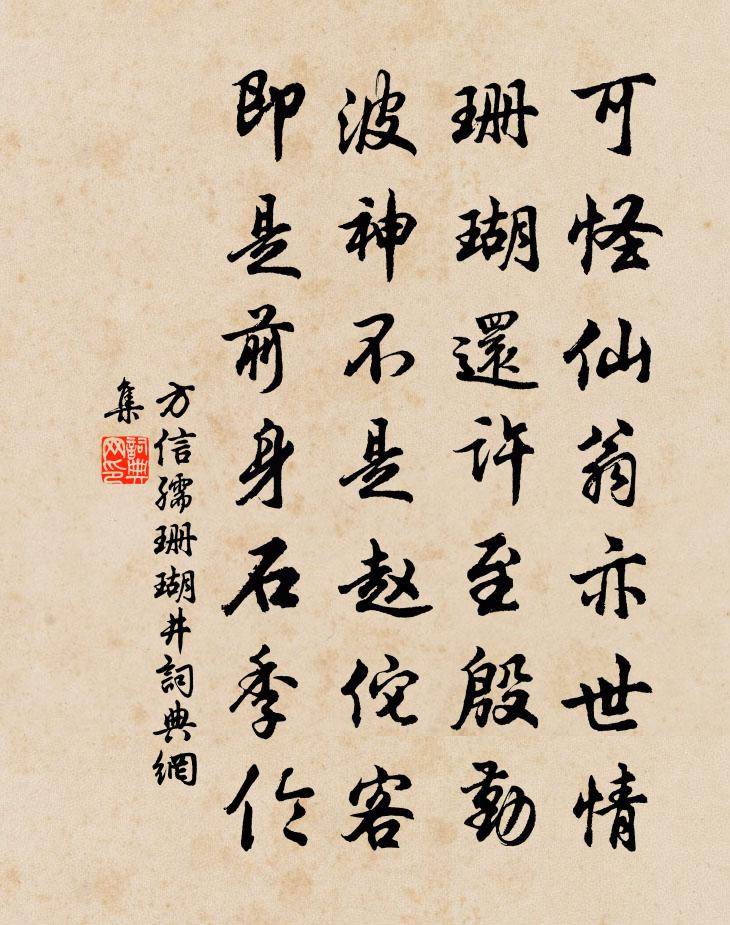 可怪仙翁亦世情
珊瑚還許至殷勤
波神不是赵佗客
即是前身石季伦
方信孺珊瑚井詞典網
集
詞典
网印